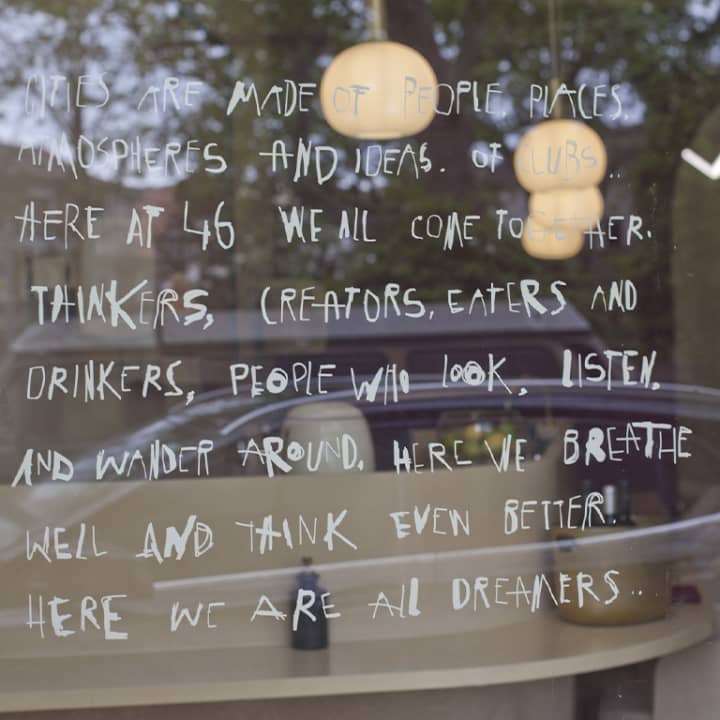 CITIES ARE MADE OF PEOPLE, PLACES,
ATMOSPHERES AND IDEAS. OF CLUBS..
HERE AT 46 WE ALL COME TOGETHER.
THINKERS, CREATORS, EATERS AND
DRINKERS, PEOPLE WHO LOOK, LISTEN,
AND WANDER AROUND. HERE WE BREATHE
WELL AND THINK EVEN BETTER.
HERE WE ARE ALL DREAMERS..